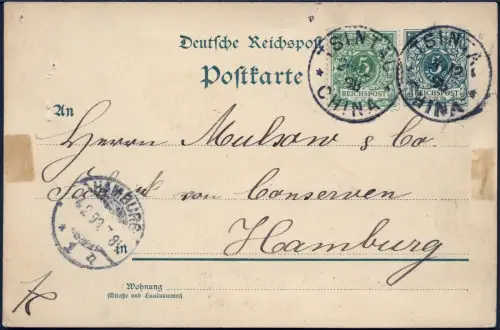 Deutsche Reichspost
Postkarte
5
REICHSPOST
5
REICHSPOST
TSINTAU
CHINA
TSINTAU
CHINA
An
Herren Mulsow & Co.
Fabrik von Conserven
in Hamburg
HAMBURG
1 n
Wohnung
(Straße und Hausnummer)